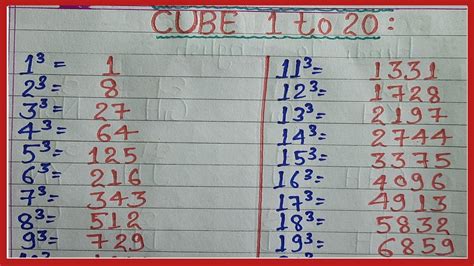 CUBE 1 to 20:
1³= 1
2³= 8
3³= 27
4³= 64
5³= 125
6³= 216
7³= 343
8³= 512
9³= 729
11³= 1331
12³= 1728
13³= 2197
14³= 2744
15³= 3375
16³= 4096
17³= 4913
18³= 5832
19³= 6859